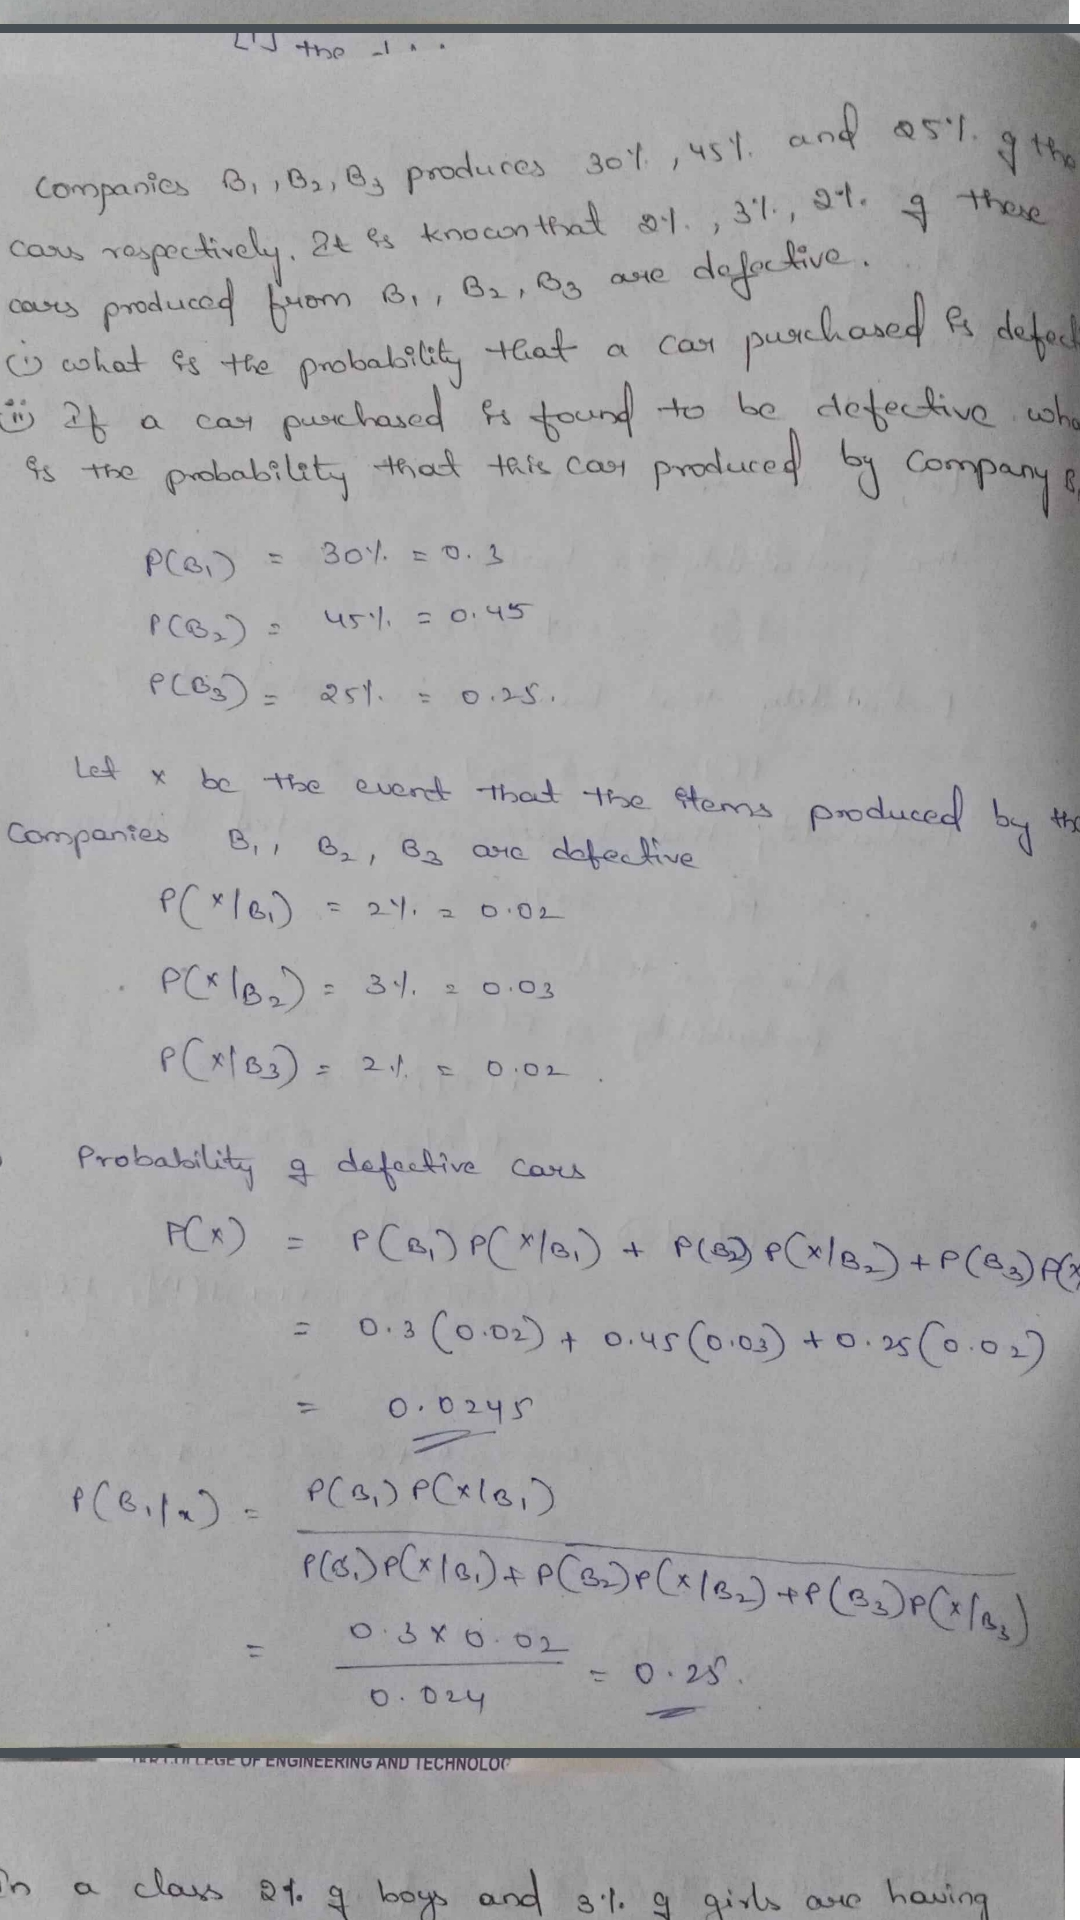 the
Companies B₁, B₂, B₃ produces 30%, 45% and 25% of the
cars respectively. It is known that 2%, 3%, 2% of these
cars produced from B₁, B₂, B₃ are defective.
(i) what is the probability that a car purchased is defect
(ii) If a car purchased is found to be defective wha
is the probability that this car produced by Company B
P(B₁) = 30% = 0.3
P(B₂) = 45% = 0.45
P(B₃) = 25% = 0.25.
Let x be the event that the items produced by the
Companies B₁, B₂, B₃ are defective
P(x/B₁) = 2% = 0.02
P(x/B₂) = 3% = 0.03
P(x/B₃) = 2% = 0.02.
Probability of defective cars
P(x) = P(B₁) P(x/B₁) + P(B₂) P(x/B₂) + P(B₃) P(x
= 0.3 (0.02) + 0.45 (0.03) + 0.25 (0.02)
= 0.0245
P(B₁/x) = P(B₁) P(x/B₁)
P(B₁) P(x/B₁) + P(B₂) P(x/B₂) + P(B₃) P(x/B₃)
= 0.3 x 0.02
0.024 = 0.25.
COLLEGE OF ENGINEERING AND TECHNOLOG
In a class 2% of boys and 3% of girls are having